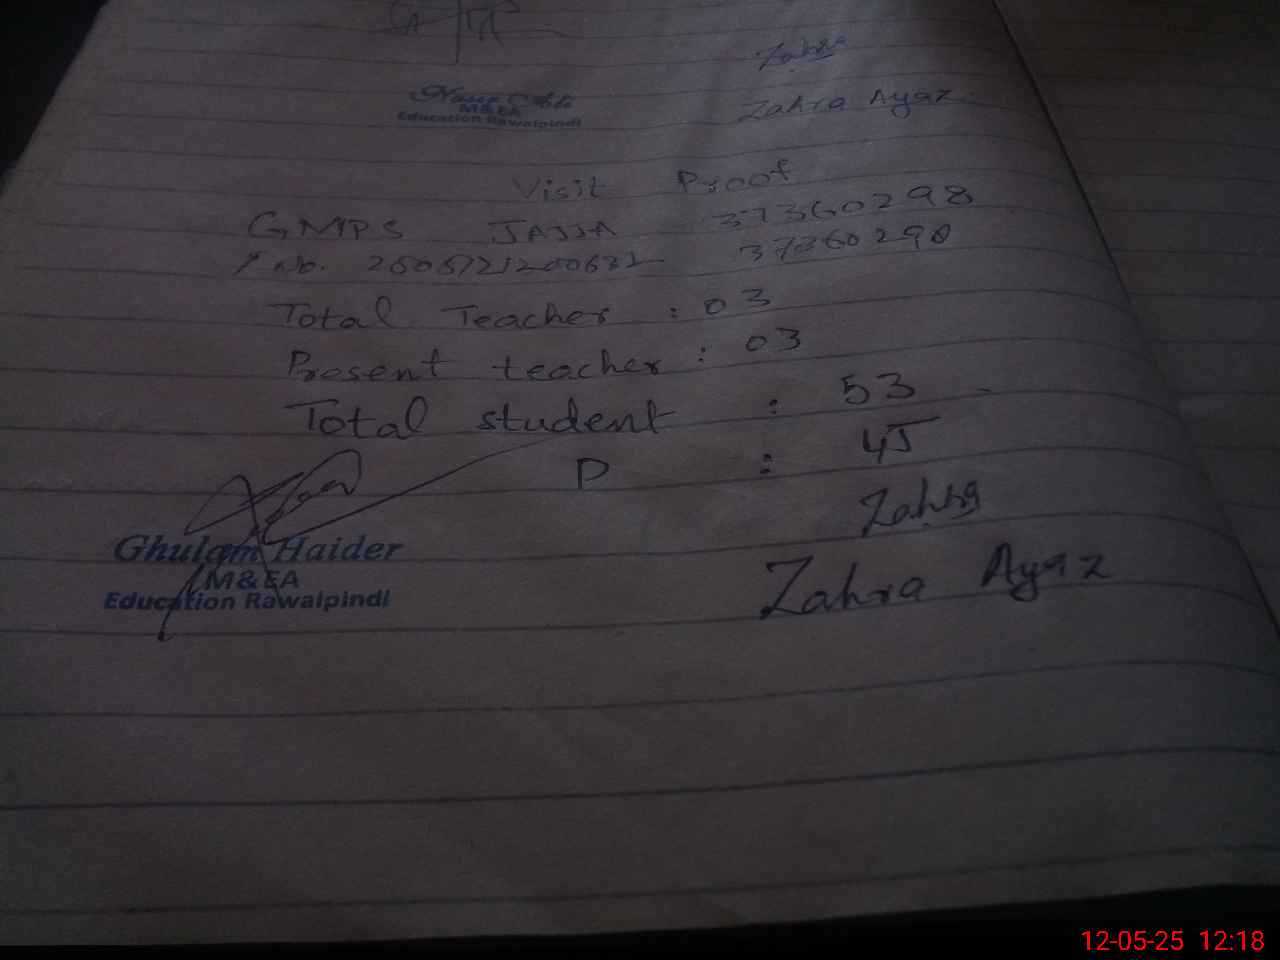 Zahra
Zahra Ayaz
M&EA
Education Rawalpindi
Visit Proof
GMPS JAJJA 37360298
No. 37360298
Total Teacher : 03
Present teacher : 03
Total student : 53
P : 45
Zahra
Ghulam Haider
M&EA
Education Rawalpindi
Zahra Ayaz
12-05-25 12:18